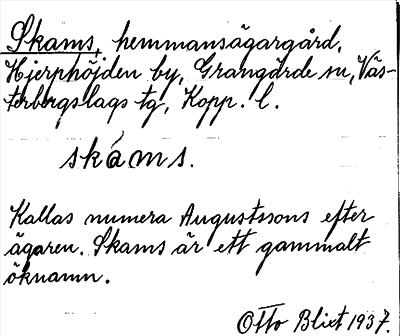 Skams, hemmansägargård,
Hjerphöjden by, Grangärde sn, Väs-
terbergslags tg, Kopp. l.
skáms.
Kallas numera Augustssons efter
ägaren. Skams är ett gammalt
öknamn.
Otto Blixt 1937.